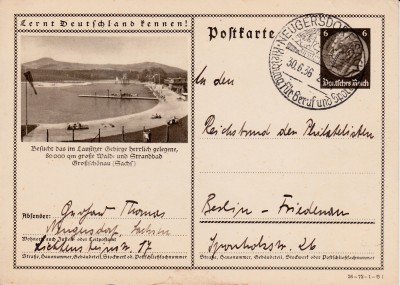 Lernt Deutschland kennen!
Postkarte
NEUGERSDORF
30.6.36
für Beruf und
6 6
Deutsches Reich
Besucht das im Lausitzer Gebirge herrlich gelegene,
80000 qm große Wald- und Strandbad
Großschönau (Sachs)
An den
Reichsbund der Philatelisten
Berlin - Friedenau
Sponholzstr. 26
Straße, Hausnummer, Gebäudeteil, Stockwerk od. Postschließfachnummer
Absender: Gerhard Thomas
Neugersdorf, Sachsen
Wohnort, auch Zustell- oder Leitpostamt
17
Straße, Hausnummer, Gebäudeteil, Stockwerk od. Postschließfachnummer